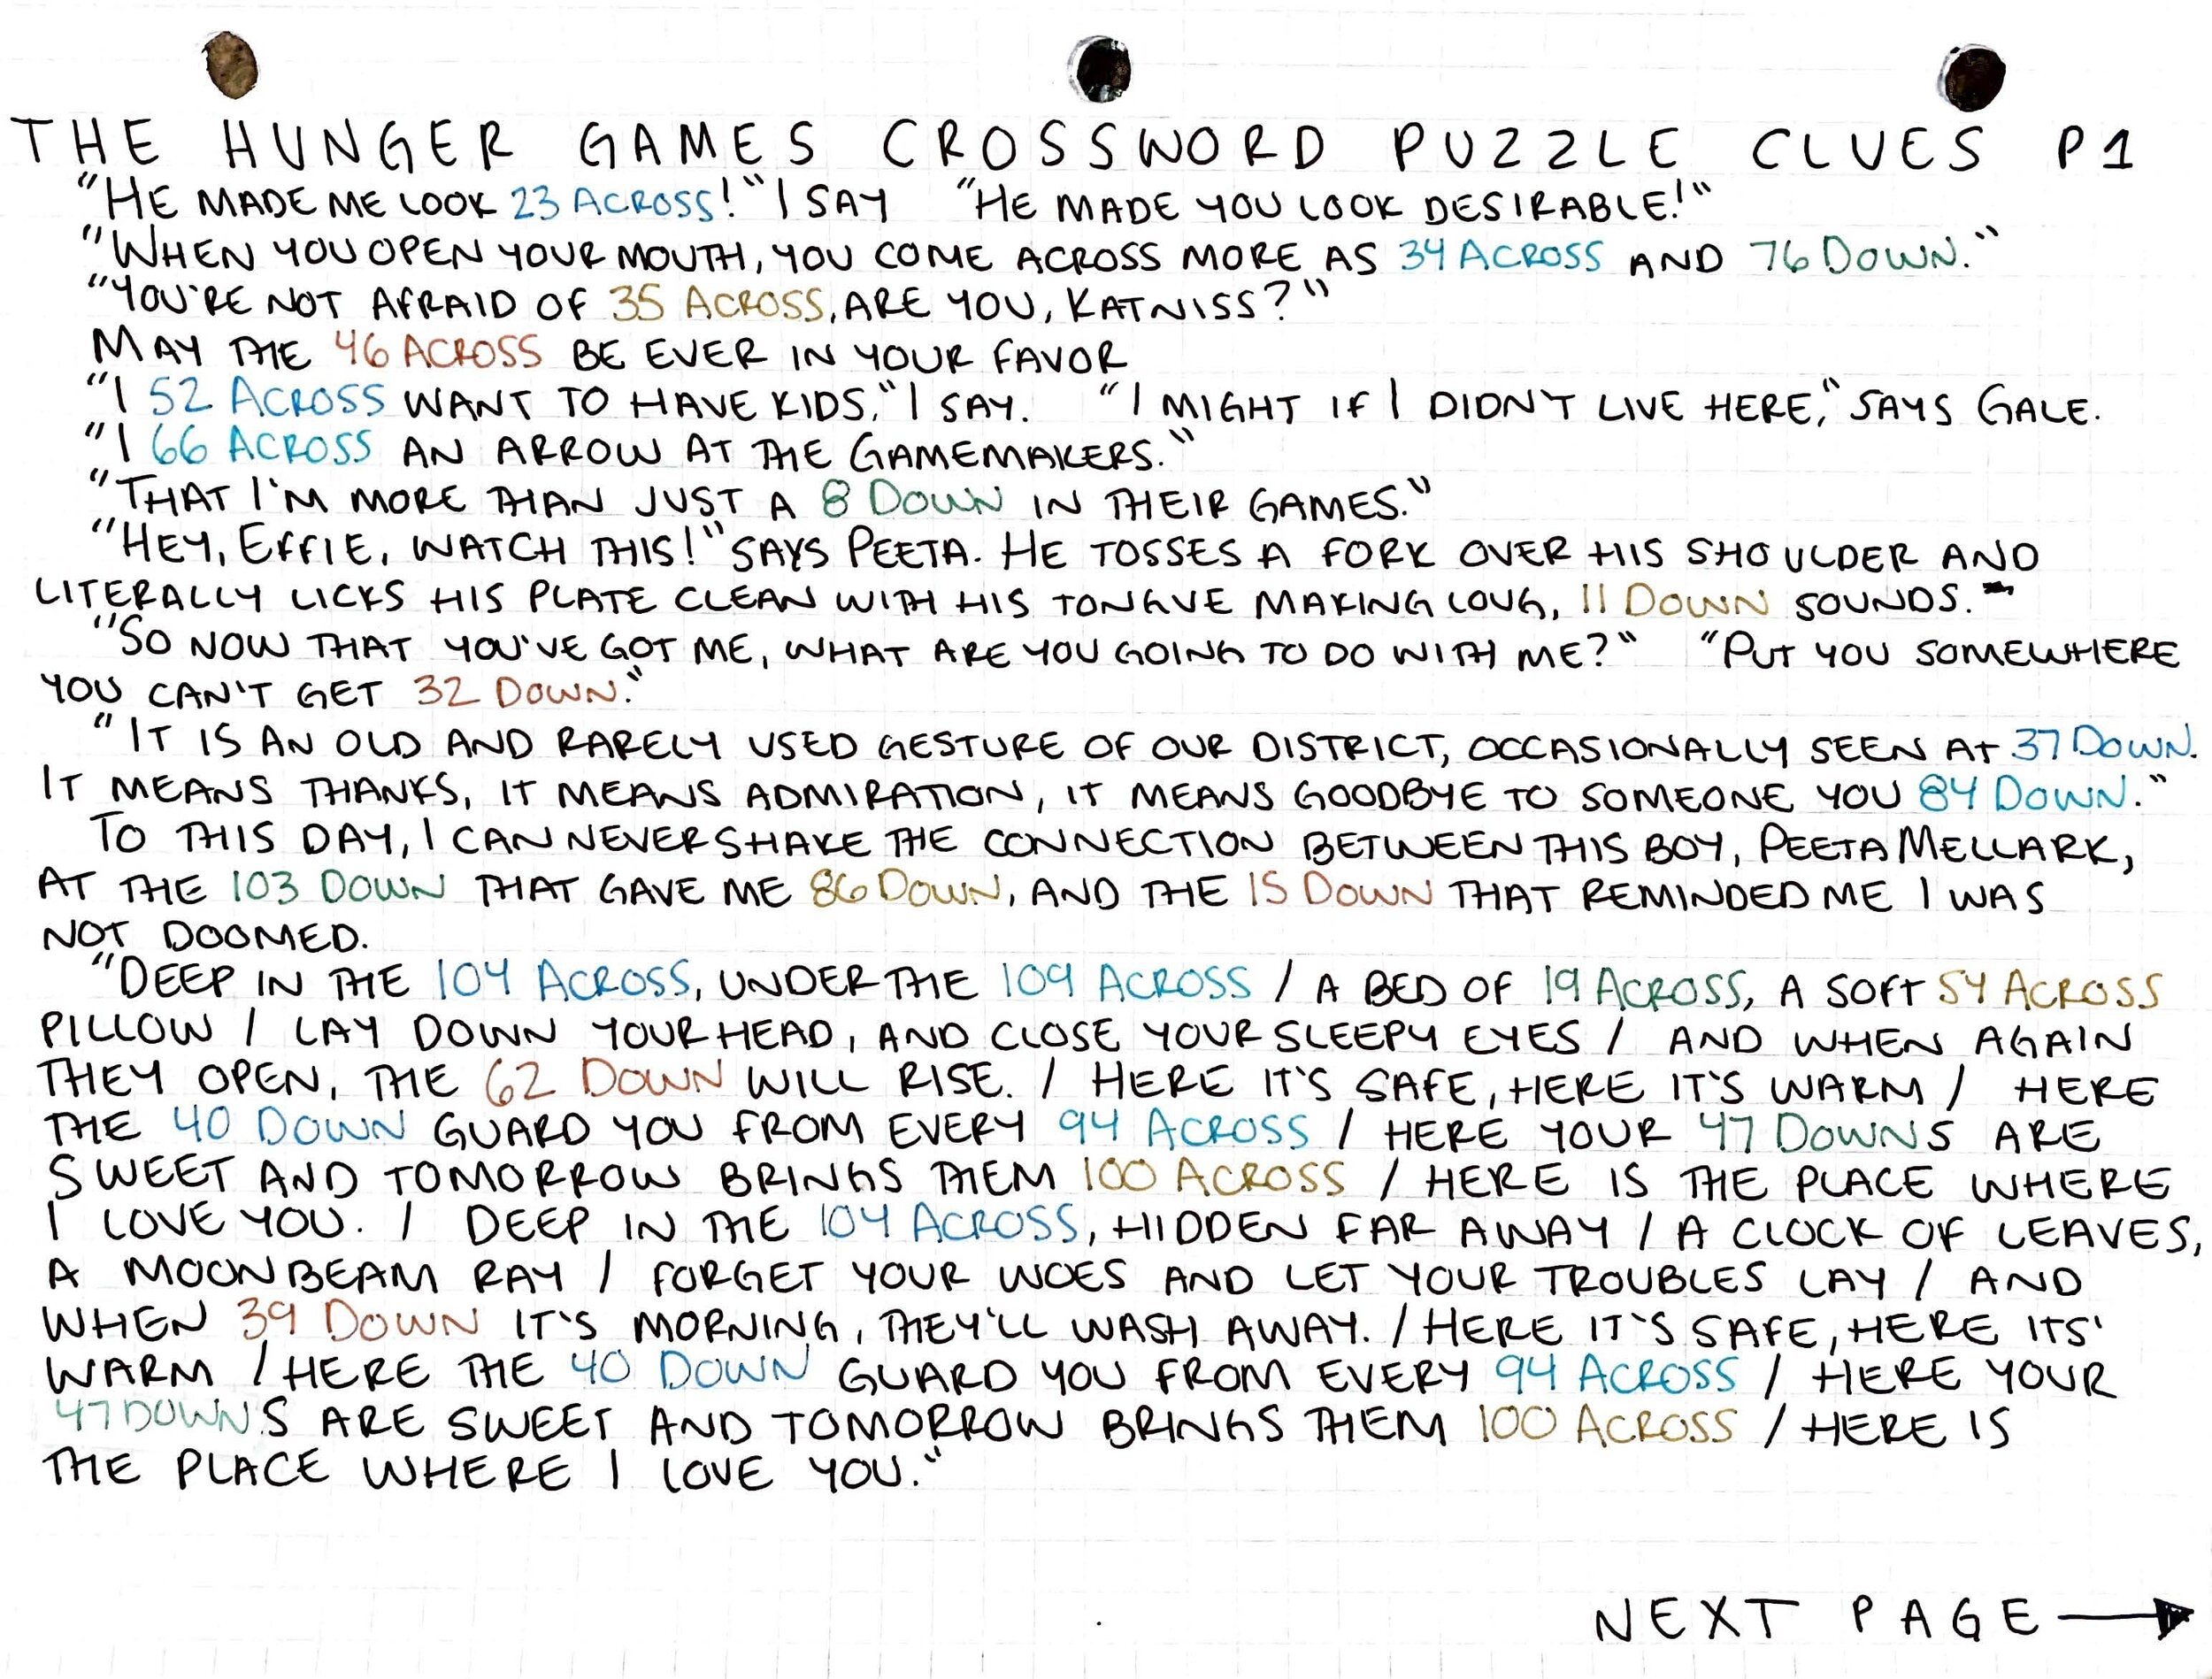 THE HUNGER GAMES CROSSWORD PUZZLE CLUES P1
"HE MADE ME LOOK 23 ACROSS!" I SAY "HE MADE YOU LOOK DESIRABLE!"
"WHEN YOU OPEN YOUR MOUTH, YOU COME ACROSS MORE AS 34 ACROSS AND 76 DOWN."
"YOU'RE NOT AFRAID OF 35 ACROSS, ARE YOU, KATNISS?"
MAY THE 46 ACROSS BE EVER IN YOUR FAVOR
"I 52 ACROSS WANT TO HAVE KIDS," I SAY. "I MIGHT IF I DIDN'T LIVE HERE," SAYS GALE.
"I 66 ACROSS AN ARROW AT THE GAMEMAKERS."
"THAT I'M MORE THAN JUST A 8 DOWN IN THEIR GAMES."
"HEY, EFFIE, WATCH THIS!" SAYS PEETA. HE TOSSES A FORK OVER HIS SHOULDER AND
LITERALLY LICKS HIS PLATE CLEAN WITH HIS TONGUE MAKING LOUG, 11 DOWN SOUNDS.
"SO NOW THAT YOU'VE GOT ME, WHAT ARE YOU GOING TO DO WITH ME?" "PUT YOU SOMEWHERE
YOU CAN'T GET 32 DOWN."
"IT IS AN OLD AND RARELY USED GESTURE OF OUR DISTRICT, OCCASIONALLY SEEN AT 37 DOWN.
IT MEANS THANKS, IT MEANS ADMIRATION, IT MEANS GOODBYE TO SOMEONE YOU 84 DOWN."
TO THIS DAY, I CAN NEVER SHAKE THE CONNECTION BETWEEN THIS BOY, PEETA MELLARK,
AT THE 103 DOWN THAT GAVE ME 86 DOWN, AND THE 15 DOWN THAT REMINDED ME I WAS
NOT DOOMED.
"DEEP IN THE 104 ACROSS, UNDER THE 109 ACROSS / A BED OF 19 ACROSS, A SOFT 54 ACROSS
PILLOW / LAY DOWN YOUR HEAD, AND CLOSE YOUR SLEEPY EYES / AND WHEN AGAIN
THEY OPEN, THE 62 DOWN WILL RISE. / HERE IT'S SAFE, HERE IT'S WARM / HERE
THE 40 DOWN GUARD YOU FROM EVERY 94 ACROSS / HERE YOUR 47 DOWNS ARE
SWEET AND TOMORROW BRINGS THEM 100 ACROSS / HERE IS THE PLACE WHERE
I LOVE YOU. / DEEP IN THE 104 ACROSS, HIDDEN FAR AWAY / A CLOCK OF LEAVES,
A MOONBEAM RAY / FORGET YOUR WOES AND LET YOUR TROUBLES LAY / AND
WHEN 39 DOWN IT'S MORNING, THEY'LL WASH AWAY. / HERE IT'S SAFE, HERE ITS'
WARM / HERE THE 40 DOWN GUARD YOU FROM EVERY 94 ACROSS / HERE YOUR
47 DOWNS ARE SWEET AND TOMORROW BRINGS THEM 100 ACROSS / HERE IS
THE PLACE WHERE I LOVE YOU."
NEXT PAGE →